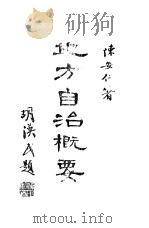 陳安仁著
地方自治概要
胡漢民題
www.mtoou.info/dogb/